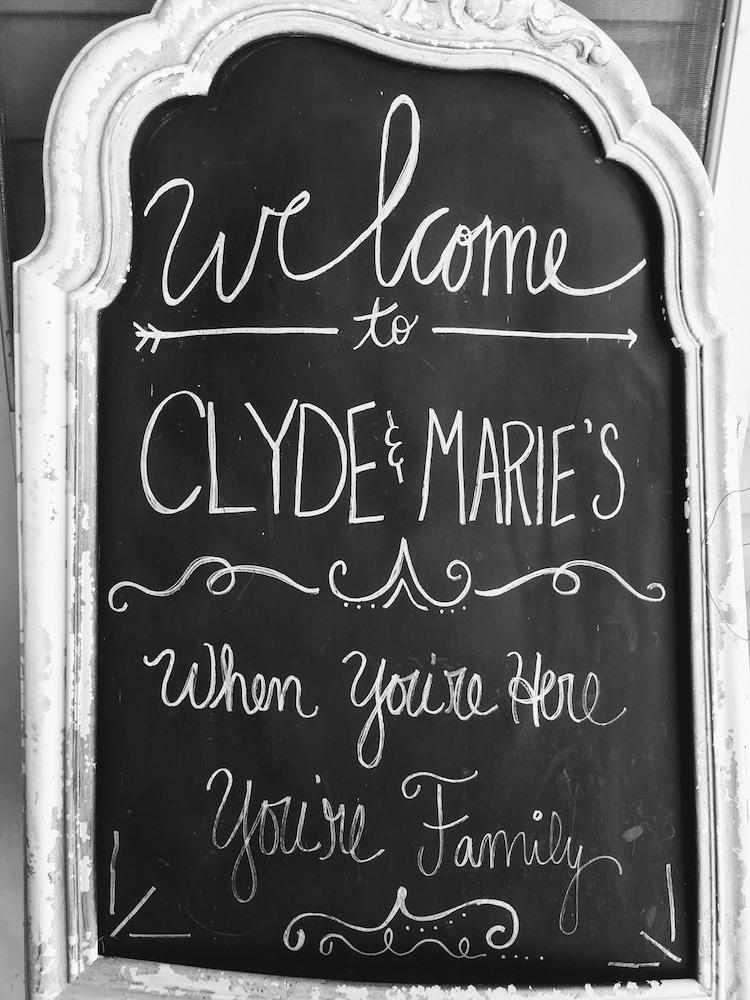 Welcome
to
CLYDE & MARIE'S
When You're Here
You're Family